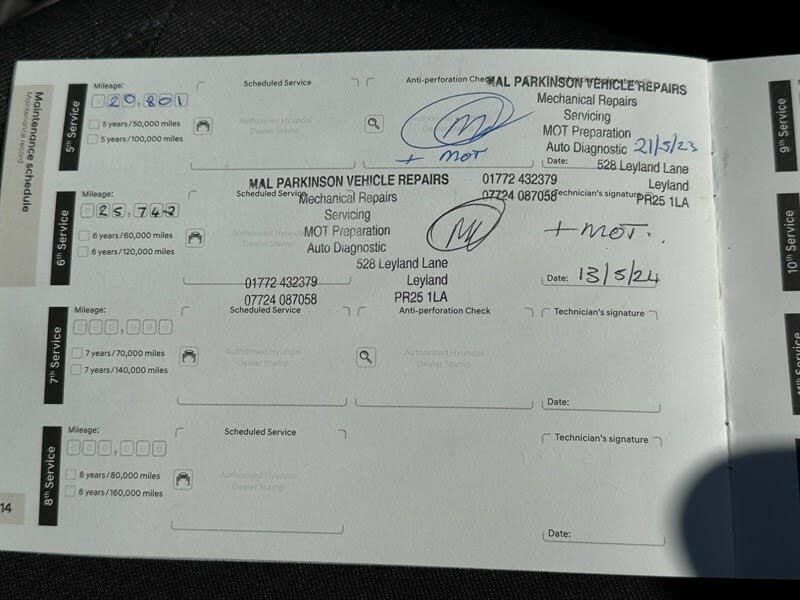 Maintenance schedule
Maintenance record
5th Service
Mileage:
20,801
5 years/50,000 miles
5 years/100,000 miles
Scheduled Service
Authorised Hyundai
Dealer Stamp
Anti-perforation Check
+ MOT
MAL PARKINSON VEHICLE REPAIRS
Mechanical Repairs
Servicing
MOT Preparation
Auto Diagnostic
21/5/23
Date:
528 Leyland Lane
01772 432379
Leyland
07724 087058
PR25 1LA
6th Service
Mileage:
25,742
6 years/60,000 miles
6 years/120,000 miles
Scheduled Service
MAL PARKINSON VEHICLE REPAIRS
Mechanical Repairs
Servicing
MOT Preparation
Auto Diagnostic
528 Leyland Lane
01772 432379
Leyland
07724 087058
PR25 1LA
Technician's signature
+ MOT.
Date: 13/5/24
7th Service
Mileage:
000,000
7 years/70,000 miles
7 years/140,000 miles
Scheduled Service
Authorised Hyundai
Dealer Stamp
Anti-perforation Check
Authorised Hyundai
Dealer Stamp
Technician's signature
Date:
8th Service
Mileage:
000,000
8 years/80,000 miles
8 years/160,000 miles
Scheduled Service
Authorised Hyundai
Dealer Stamp
Technician's signature
Date:
14
9th Service
10th Service